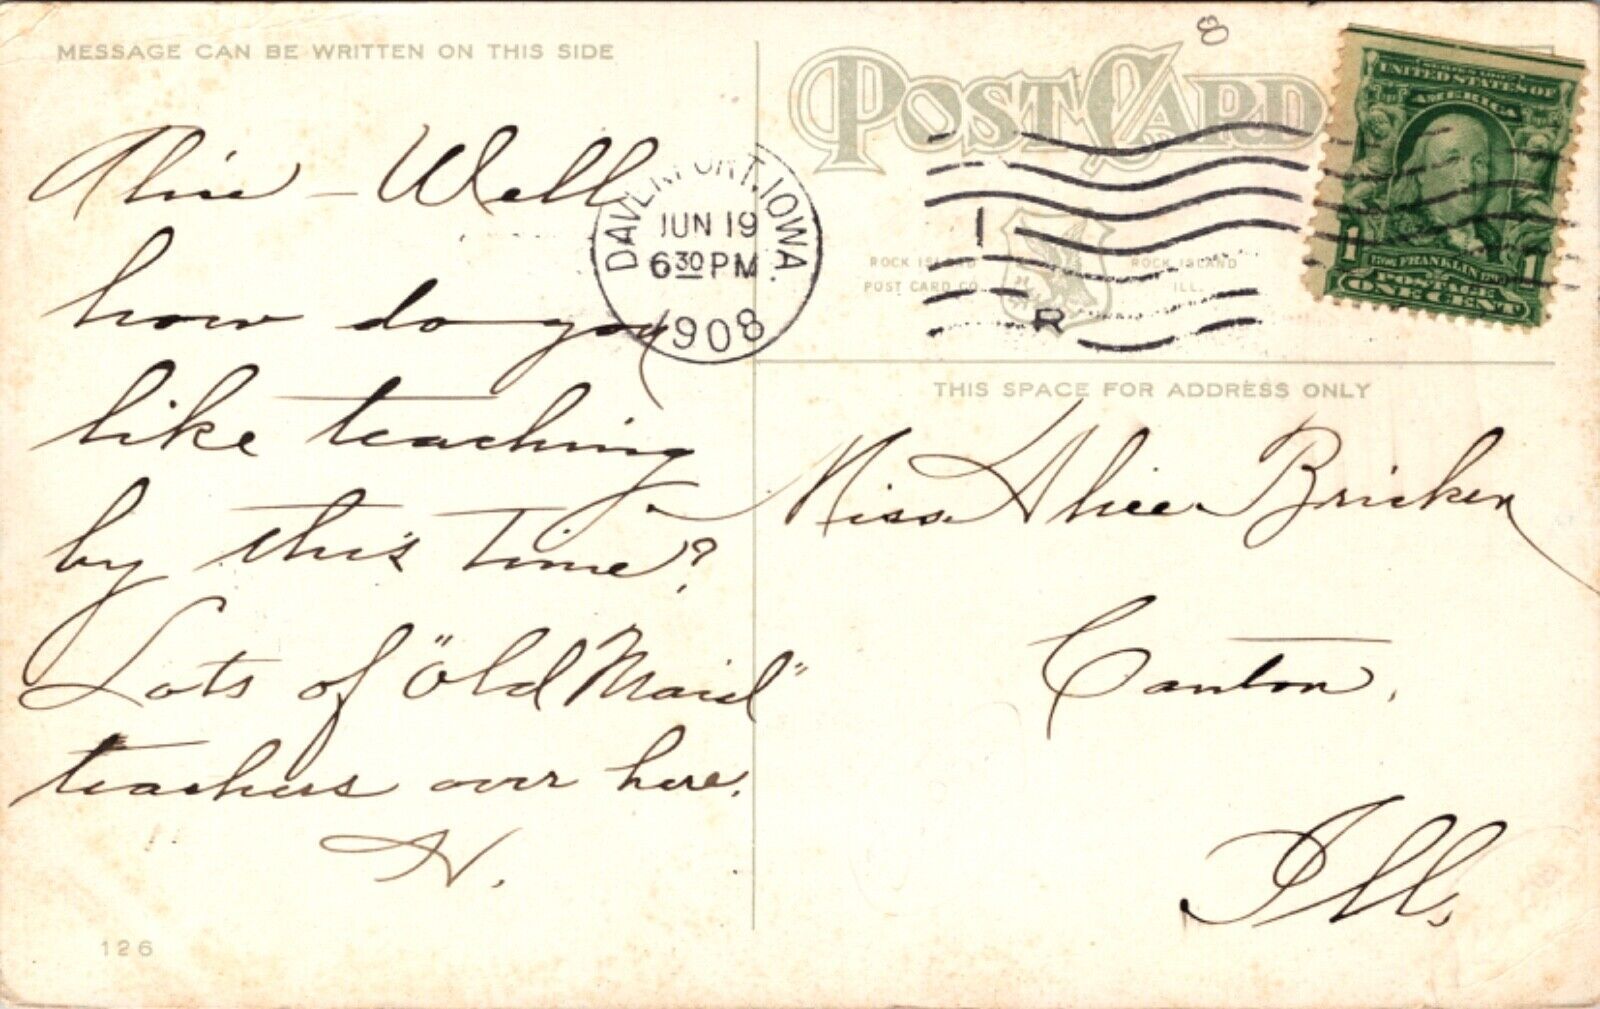 MESSAGE CAN BE WRITTEN ON THIS SIDE
Alice – Well
how do you
like teaching
by this time?
Lots of "Old Maid"
teachers over here.
126
POST CARD
DAVENPORT, IOWA.
JUN 19
6 30 PM
1908
1
R
ROCK ISLAND
POST CARD CO.
ROCK ISLAND
ILL.
SERIES 1902
UNITED STATES OF
AMERICA
1706 FRANKLIN 1790
POSTAGE
1 ONE CENT 1
THIS SPACE FOR ADDRESS ONLY
Miss Alice Bricker
Canton,
Ill,